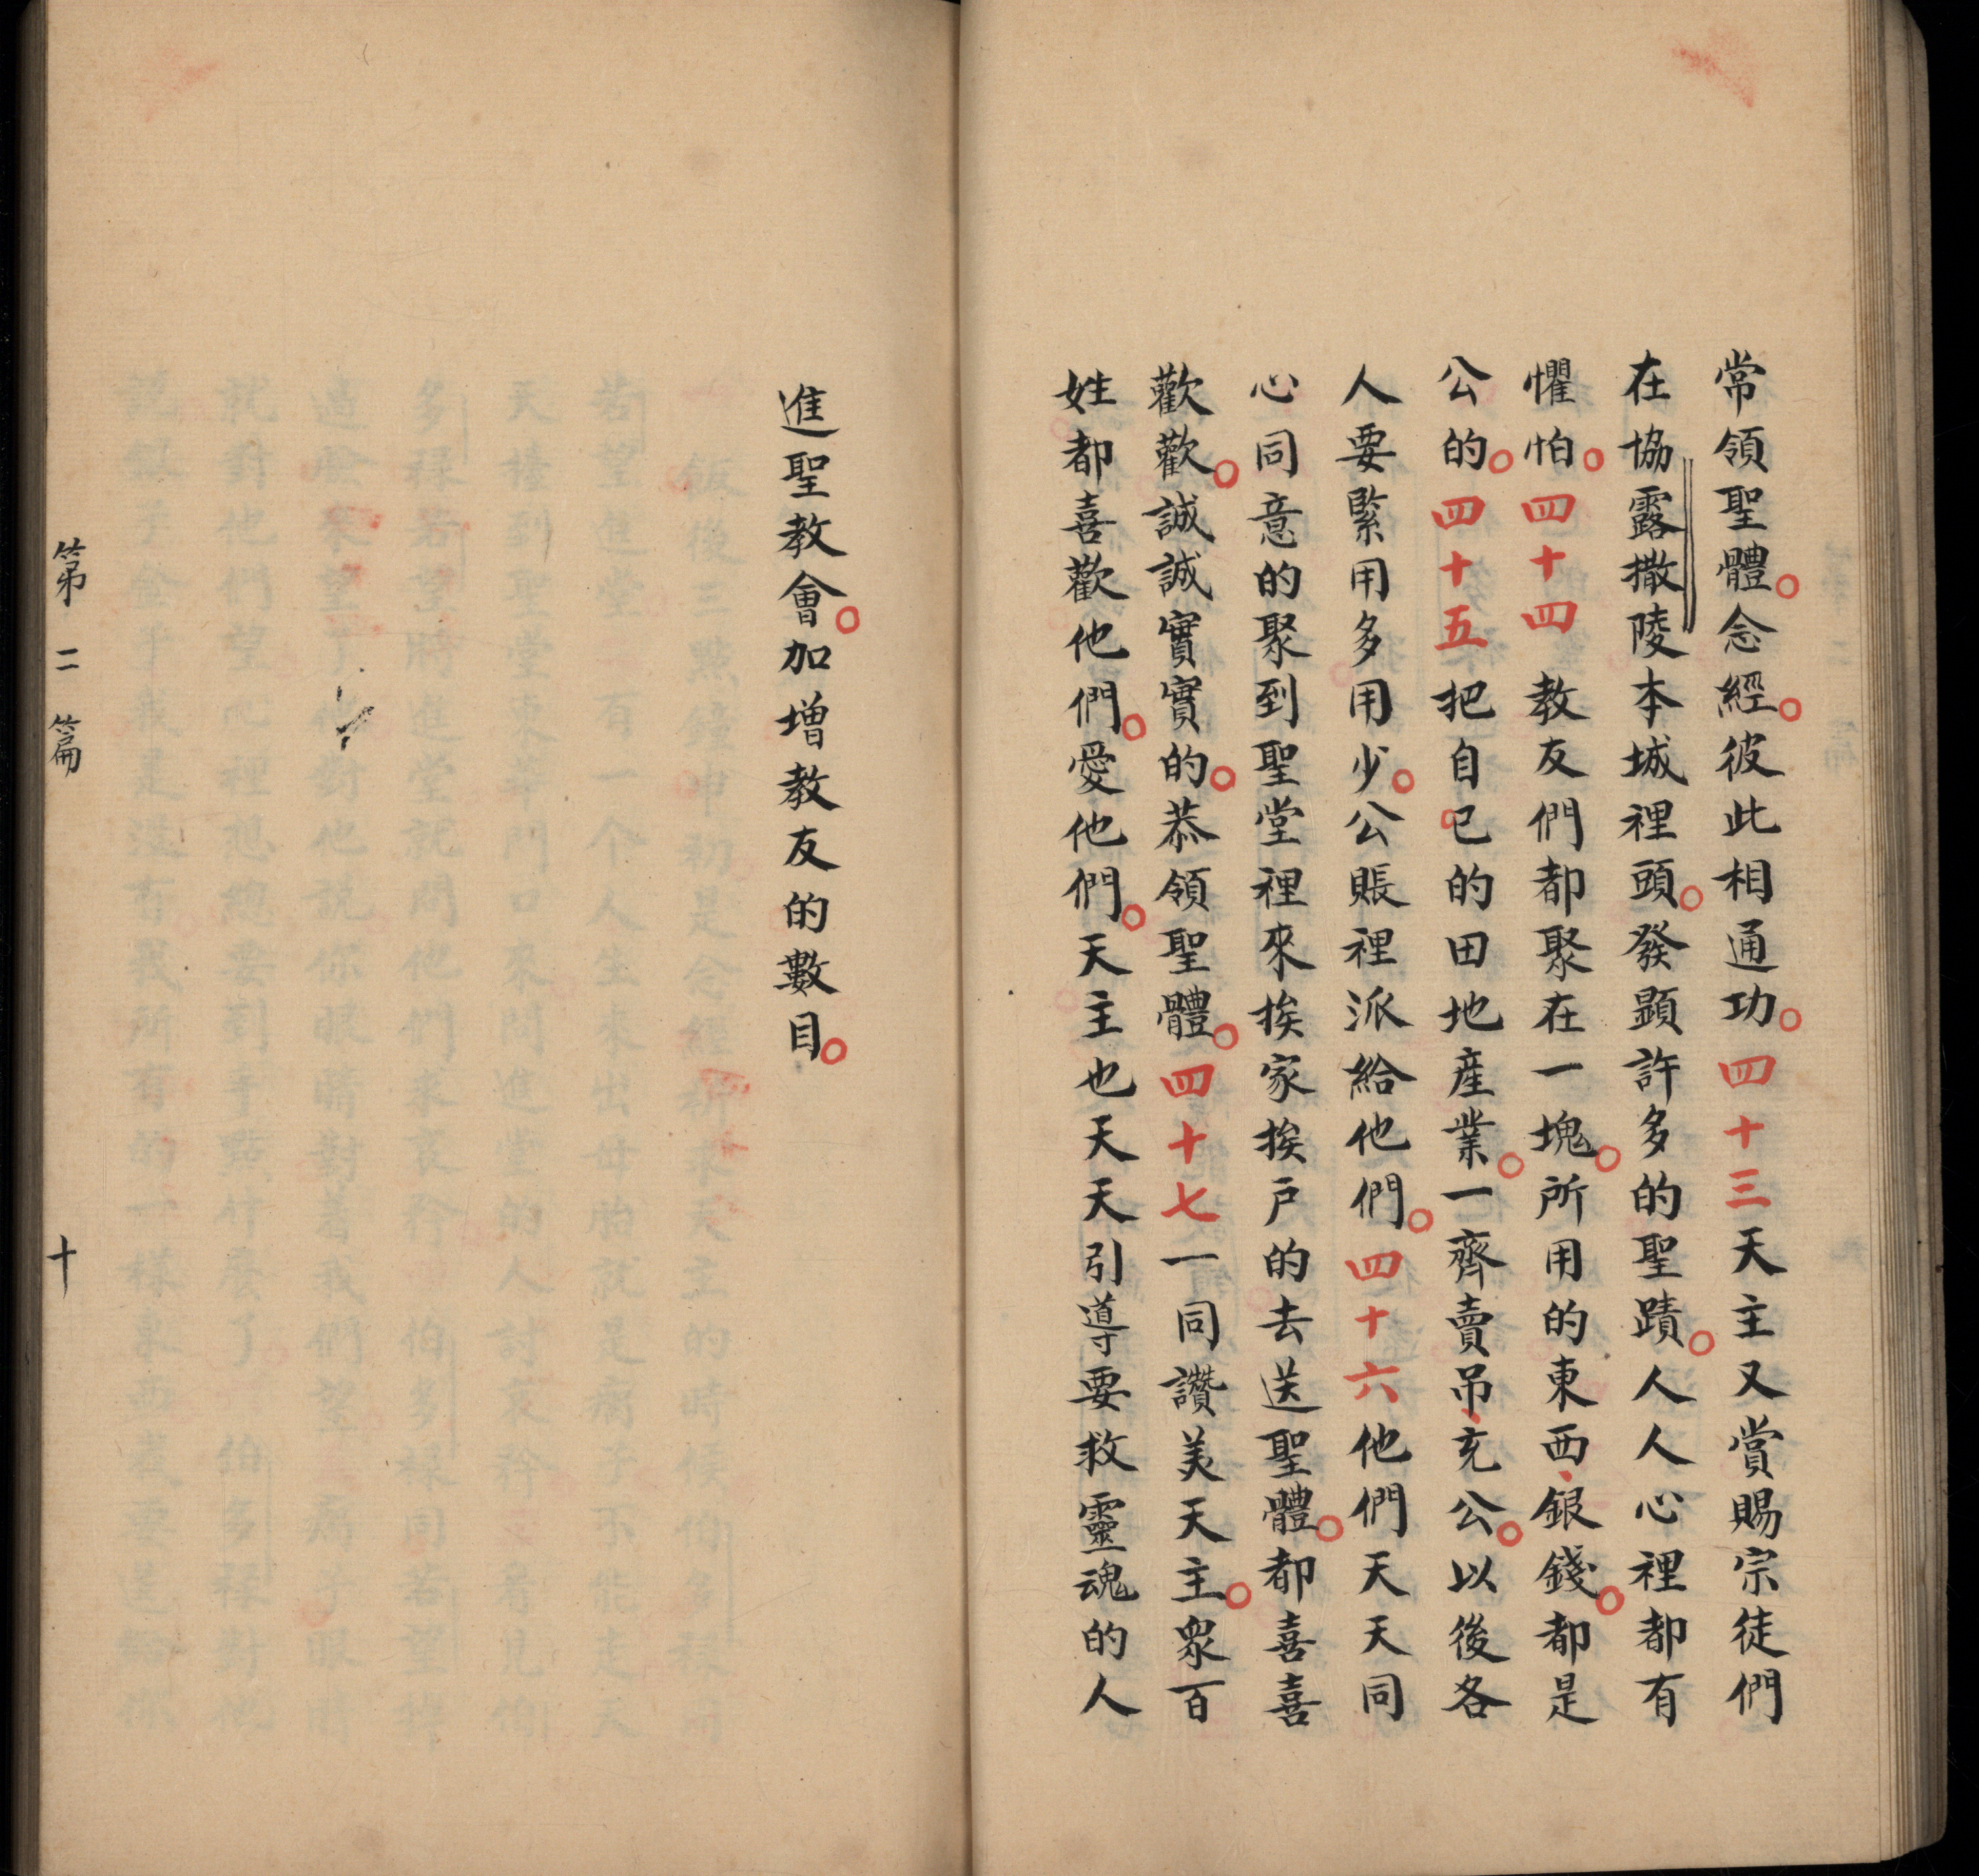 常領聖體。念經。彼此相通功。四十三天主又賞賜宗徒們
在協露撒陵本城裡頭。發顕許多的聖蹟。人人心裡都有
懼怕。四十四教友們都聚在一塊。所用的東西、銀錢。都是
公的。四十五把自己的田地産業。一齊賣吊、充公。以後各
人要緊用多用少。公賬裡派給他們。四十六他們天天同
心同意的聚到聖堂裡來挨家挨戸的去送聖體。都喜喜
歡歡。誠誠實實的。恭領聖體。四十七一同讚美天主。眾百
姓都喜歡他們。愛他們。天主也天天引導要救靈魂的人
進聖教會。加增教友的數目。
第二篇 十